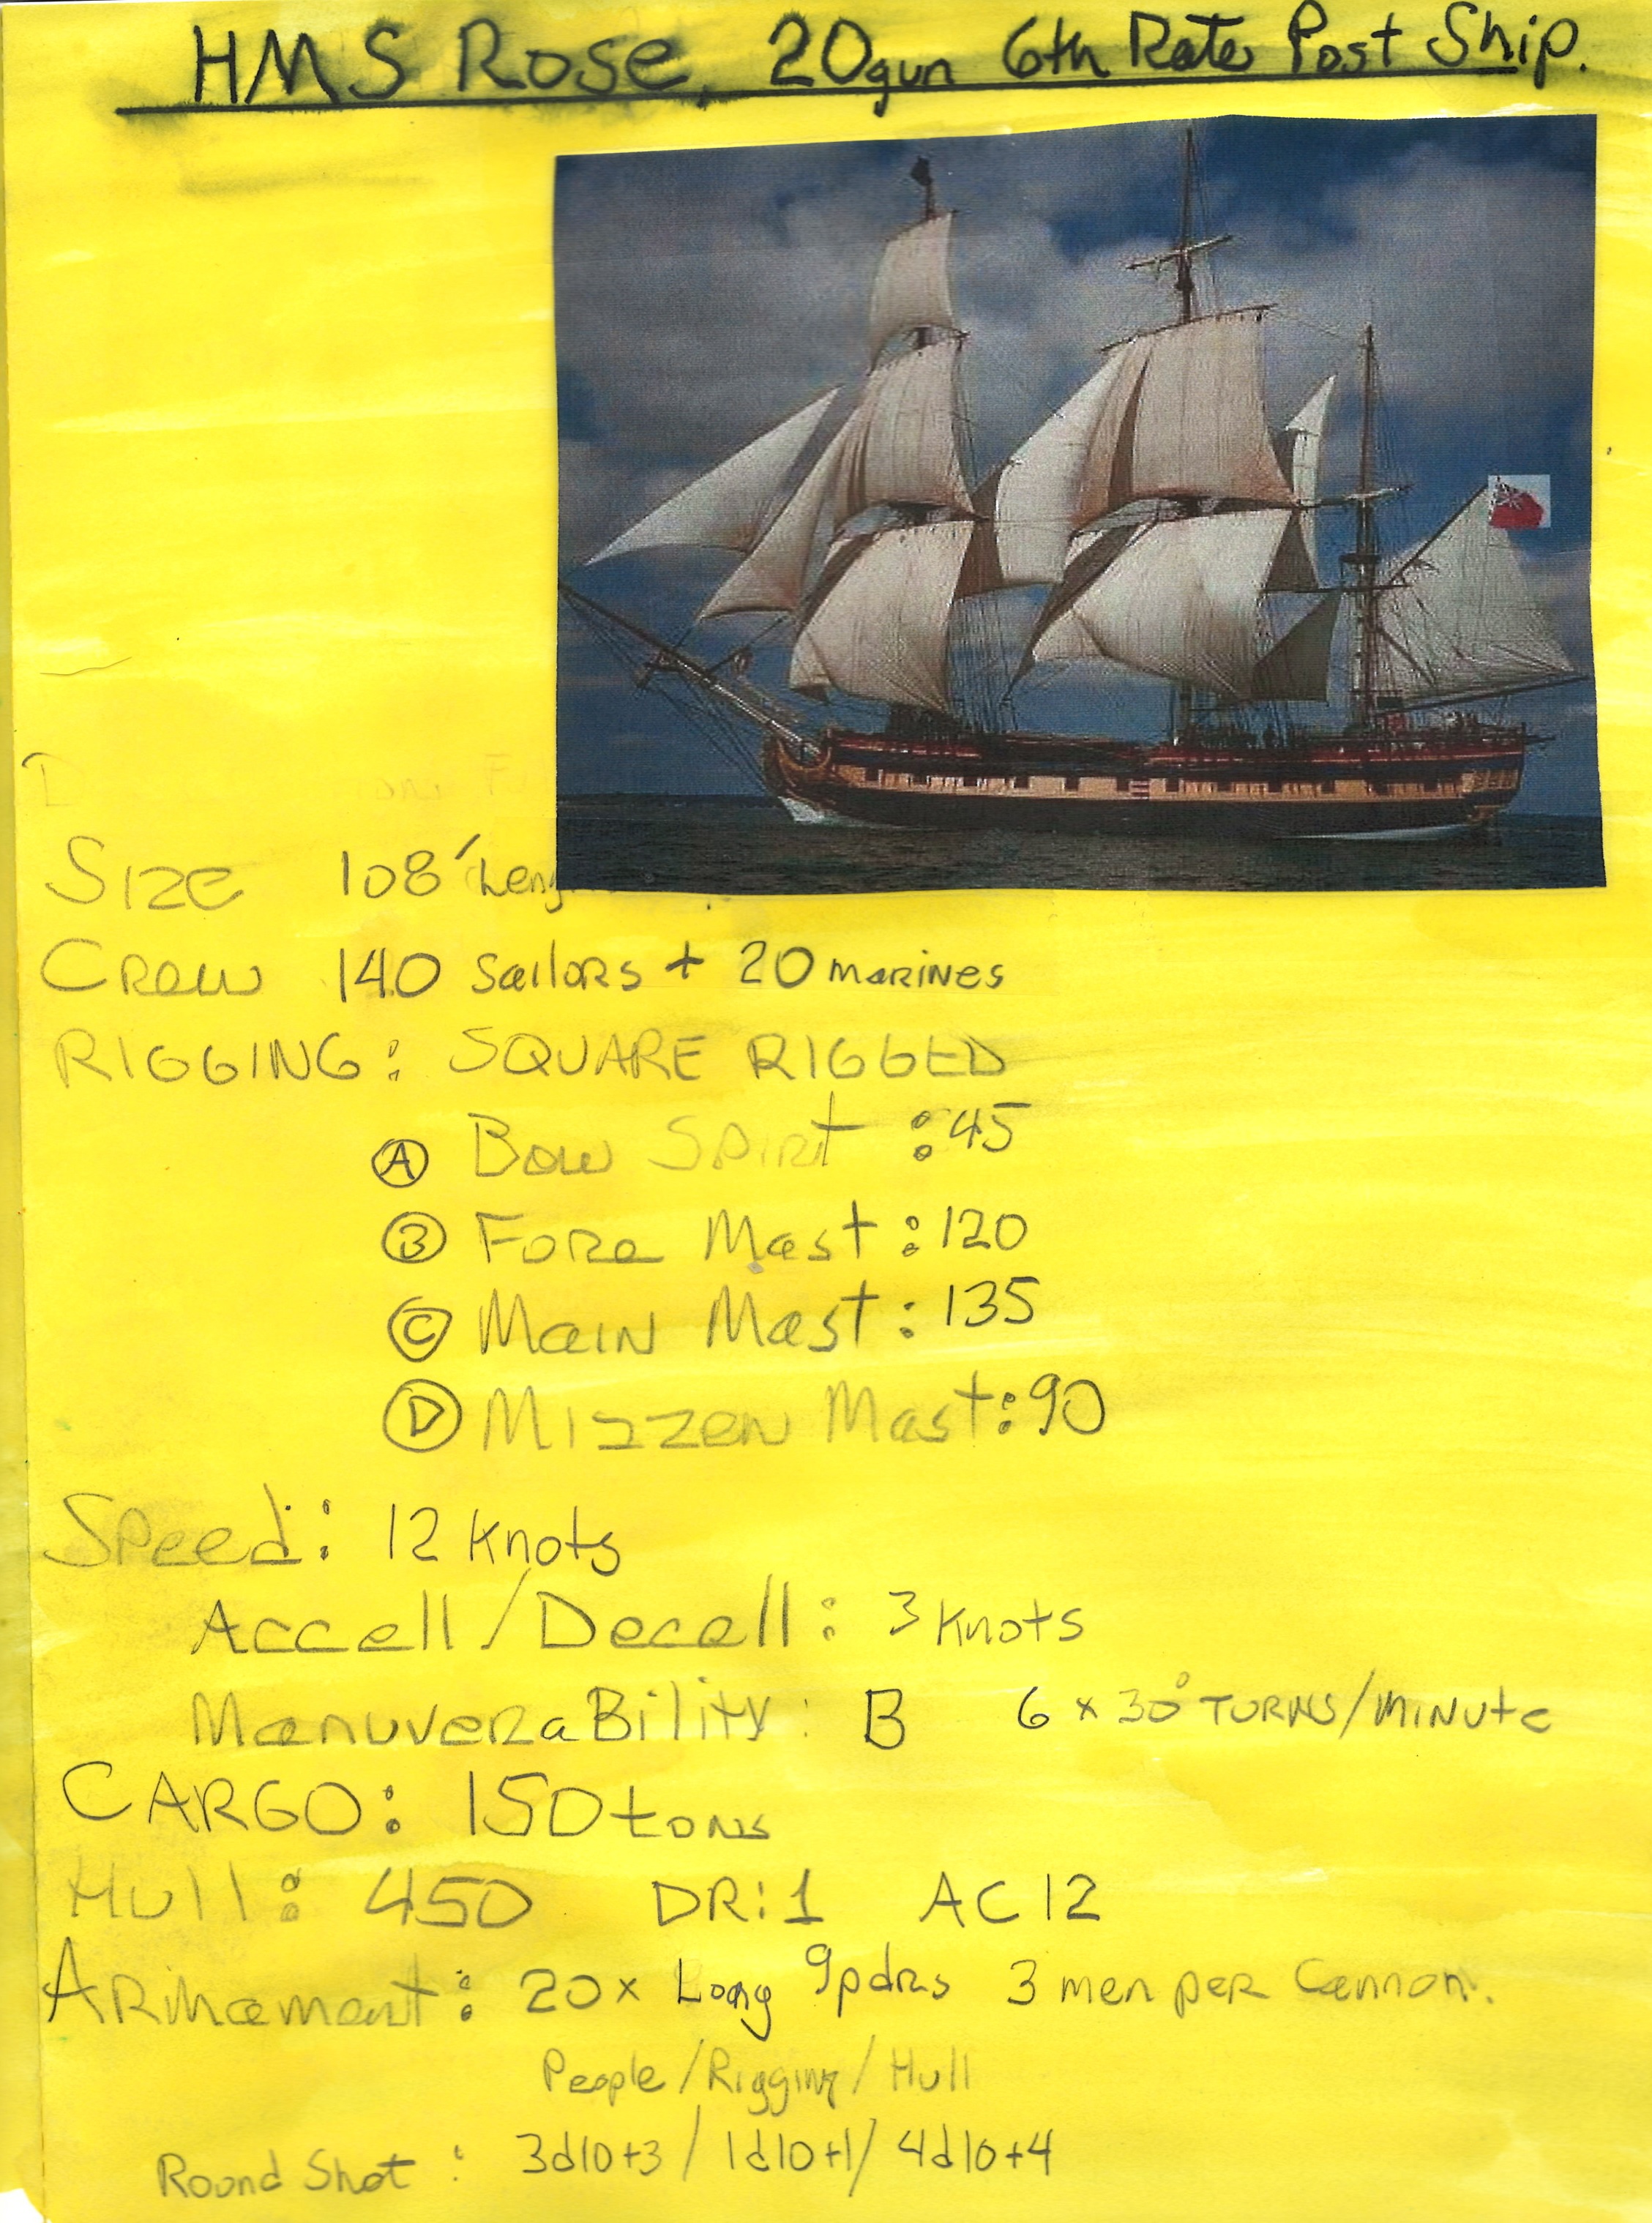 HMS Rose, 20gun 6th Rate Post Ship.
Size 108' Leng
Crew 140 sailors + 20 marines
RIGGING: SQUARE RIGGED
A Bow Spirt : 45
B Fore Mast : 120
C Main Mast : 135
D Mizzen Mast : 90
Speed: 12 Knots
Accell/Decell: 3 Knots
ManuveraBility: B 6 x 30° TURNS/MINUte
CARGO: 150 tons
Hull: 450 DR:1 AC 12
Armament: 20x Long 9pdrs 3 men per Cannon.
People/Rigging/Hull
Round Shot : 3d10+3 / 1d10+1/ 4d10+4